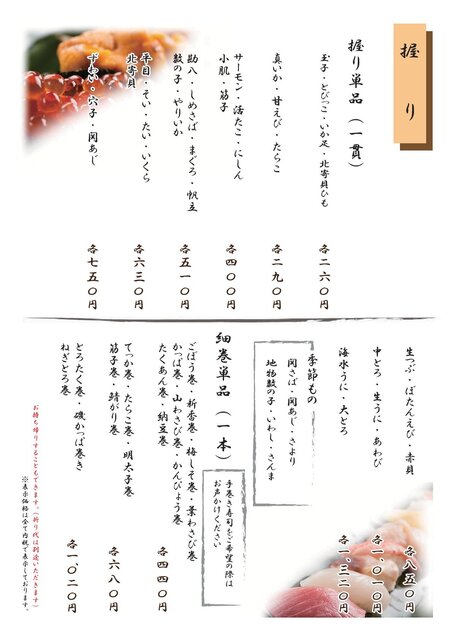 握り
握り単品（一貫）
玉子・とびっこ・いか足・北寄貝ひも
各二六〇円
真いか・甘えび・たらこ
各二九〇円
サーモン・活たこ・にしん
小肌・筋子
各四〇〇円
勘八・しめさば・まぐろ・帆立
数の子・やりいか
各五一〇円
平目・そい・たい・いくら
北寄貝
各六三〇円
ずわい・穴子・関あじ
各七五〇円
生つぶ・ぼたんえび・赤貝
各八五〇円
中とろ・生うに・あわび
各一、〇一〇円
海水うに・大とろ
各一、三二〇円
季節もの
関さば・関あじ・さより
地物数の子・いわし・さんま
細巻単品（一本）
手巻き寿司をご希望の際は
お声かけください
ごぼう巻・新香巻・梅しそ巻・葉わさび巻
かっぱ巻・山わさび巻・かんぴょう巻
たくあん巻・納豆巻
各四四〇円
てっか巻・たらこ巻・明太子巻
筋子巻・鯖がり巻
各六八〇円
とろたく巻・磯かっぱ巻き
ねぎとろ巻
各一、〇二〇円
お持ち帰りすることもできます。（折り代は別途いただきます）
※表示価格は全て内税で表示しております。